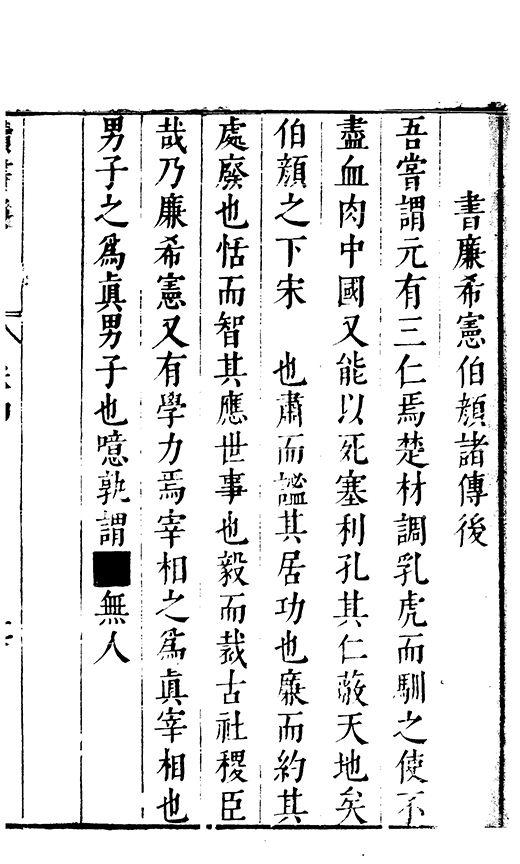 書廉希憲伯顏諸傳後
吾嘗謂元有三仁焉楚材調乳虎而馴之使不
盡血肉中國又能以死塞利孔其仁蔽天地矣
伯顏之下宋　也肅而謐其居功也廉而約其
處廢也恬而智其應世事也毅而裁古社稷臣
哉乃廉希憲又有學力焉宰相之爲眞宰相也
男子之爲眞男子也噫孰謂■無人